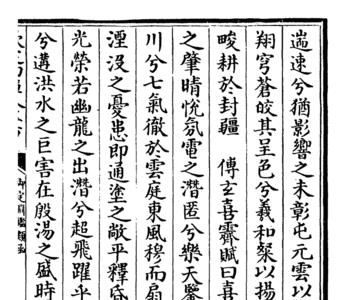 遄速兮猶影響之未彰屯元雲以
翔穹蒼皎其呈色兮義和粲以揚
畯耕於封疆 傅玄喜霽賦曰喜
之肇晴悅氛電之潛匿兮樂天鑒
川兮七氣徹於雲庭東風穆而扇
湮没之憂患即通塗之敞平釋昏
光榮若幽龍之出潛兮超飛躍乎
兮遘洪水之巨害在殷湯之盛時